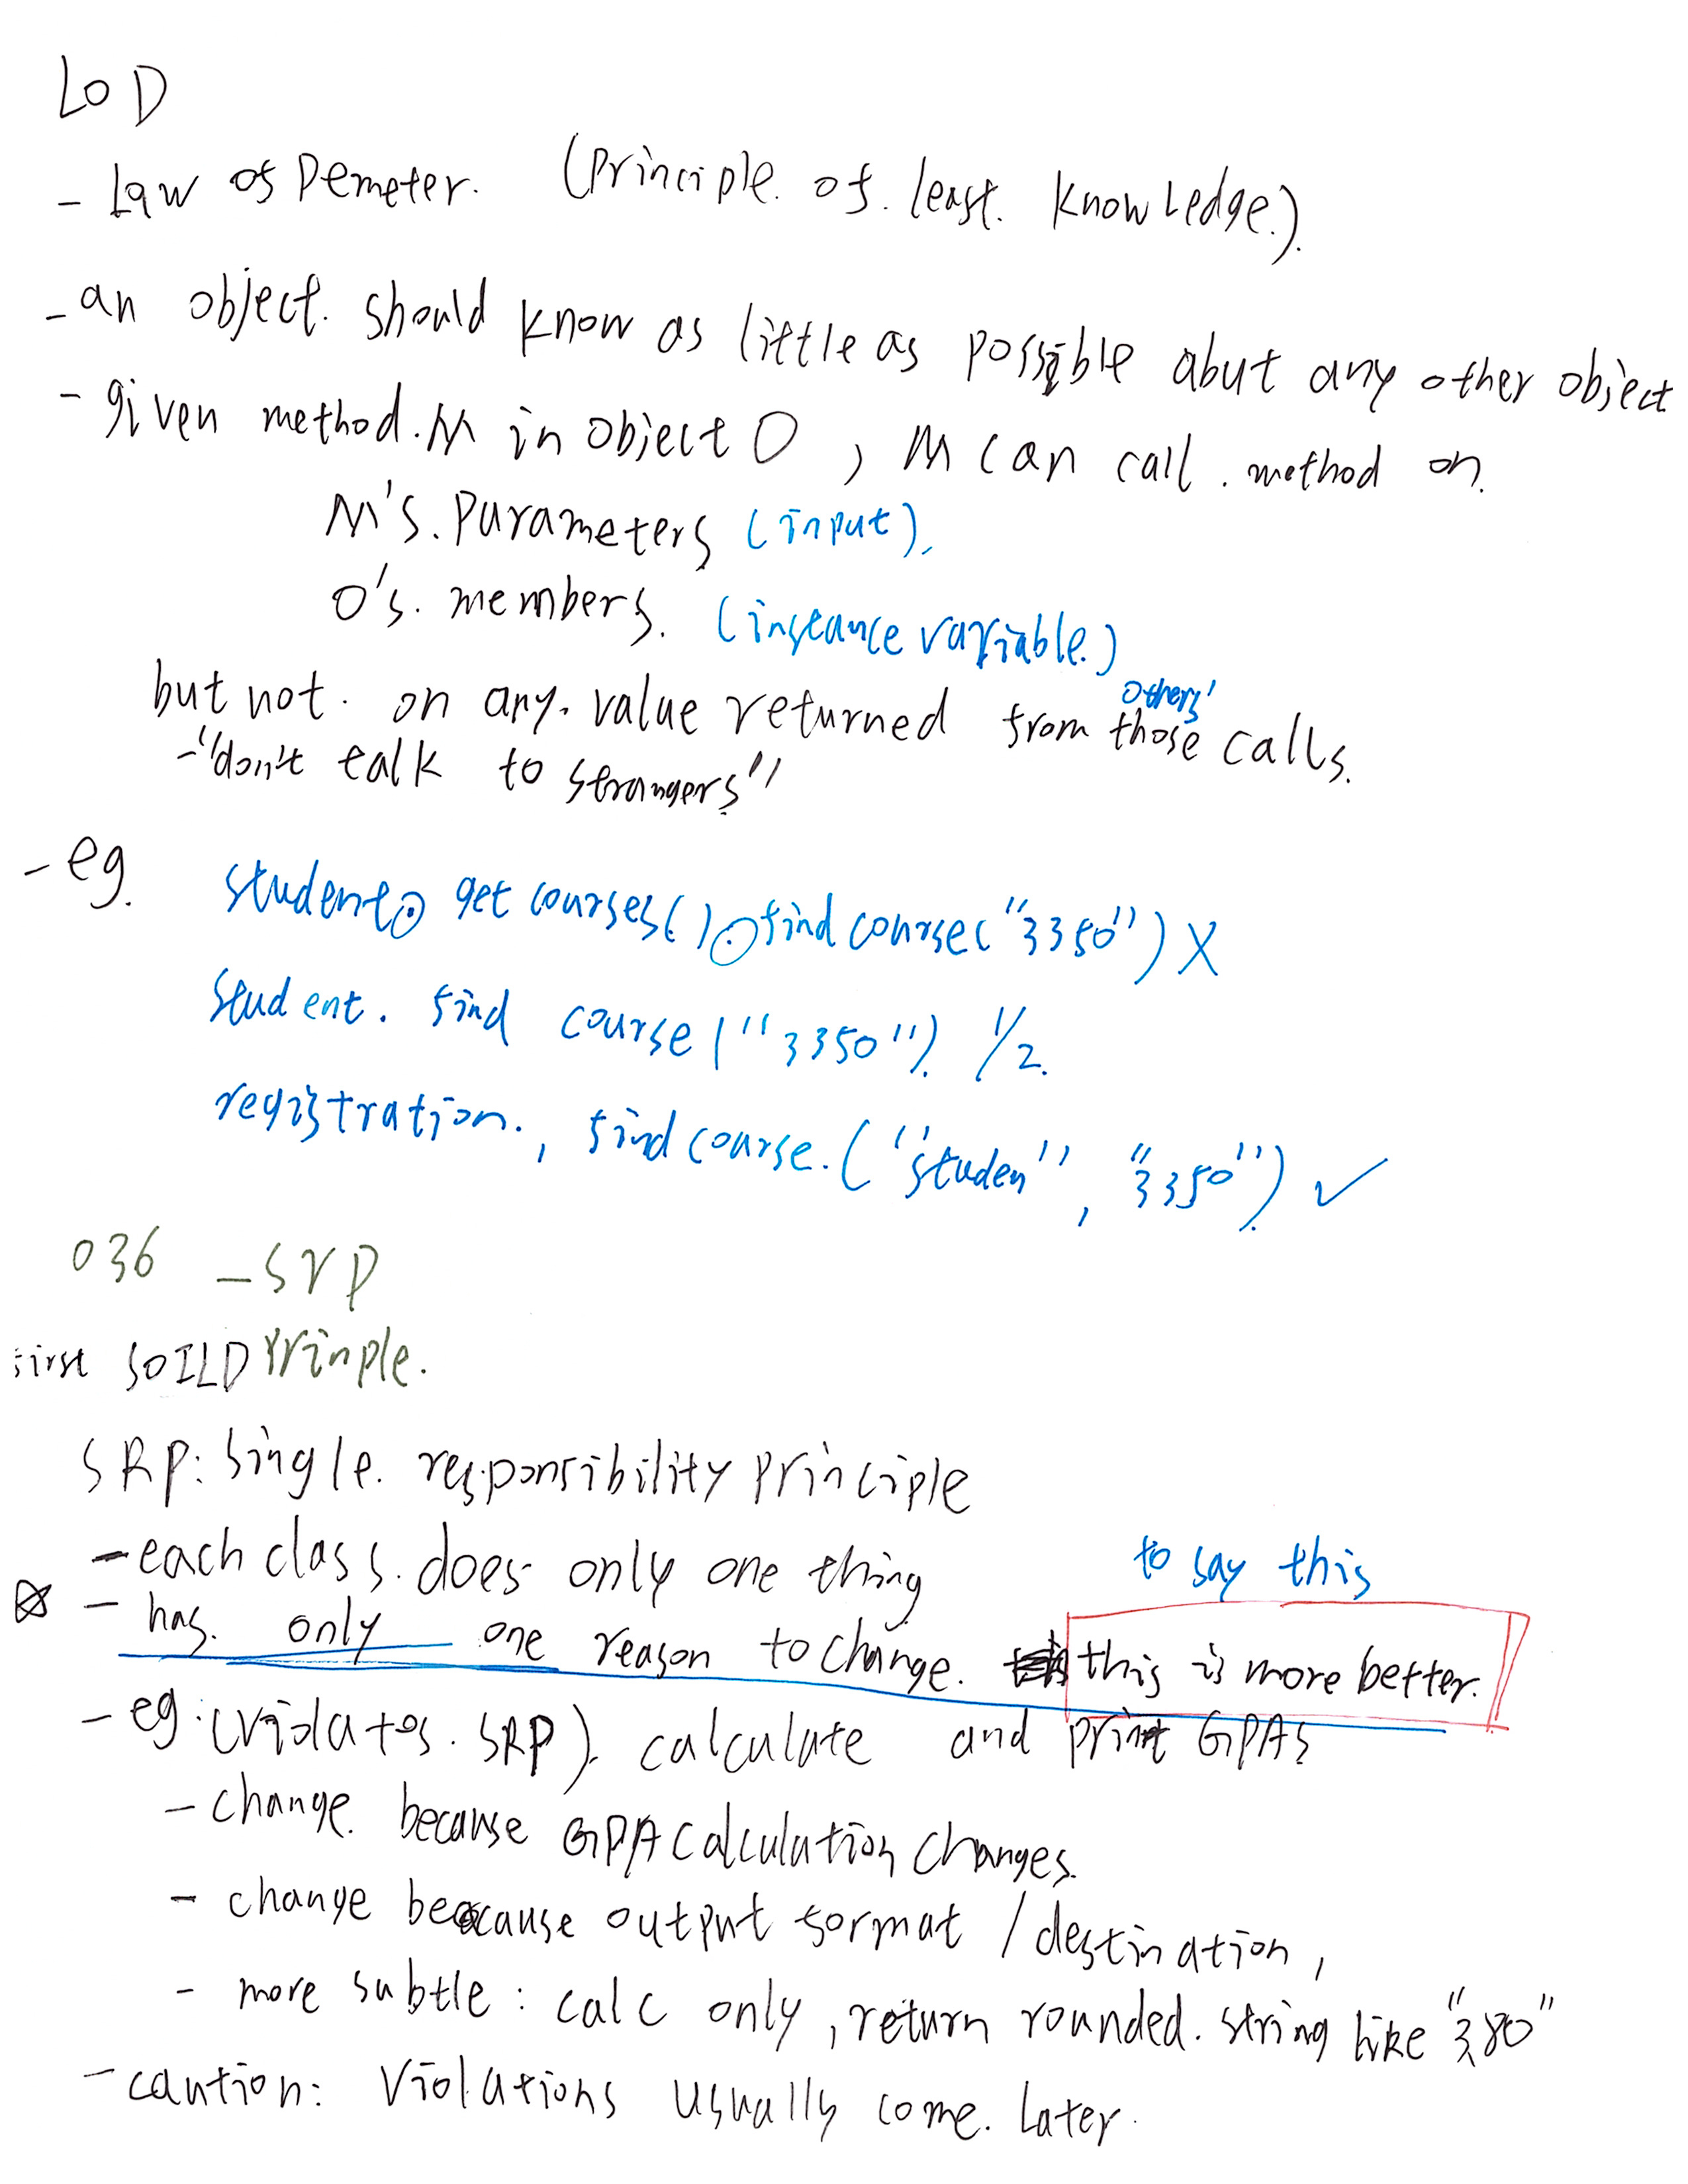 LoD
- Law of Demeter. (Principle. of. least. knowledge.).
- an object. should know as little as possible abut any other object
- given method. M in object O , M can call. method on.
M's. Parameters (input),
O's. members. (instance variable.)
but not. on any. value returned from those others' calls.
- "don't talk to strangers"
- eg. student. get courses( ). find course( "3350" ) X
student. find course ( "3350" ). 1/2.
registration., find course. ( "studen" , "3350" ). ✓
036 - SrP
first SOILD Prinple.
SRP: Single. responsibility principle
- each class. does only one thing
to say this
- has. only one reason to change. this is more better.
- eg: (violates. SRP). calculate and print GPAs
- change. because GPA calculation changes.
- change because output format / destination,
- more subtle : calc only, return rounded. string like "3.80"
- caution: violations usually come. later.